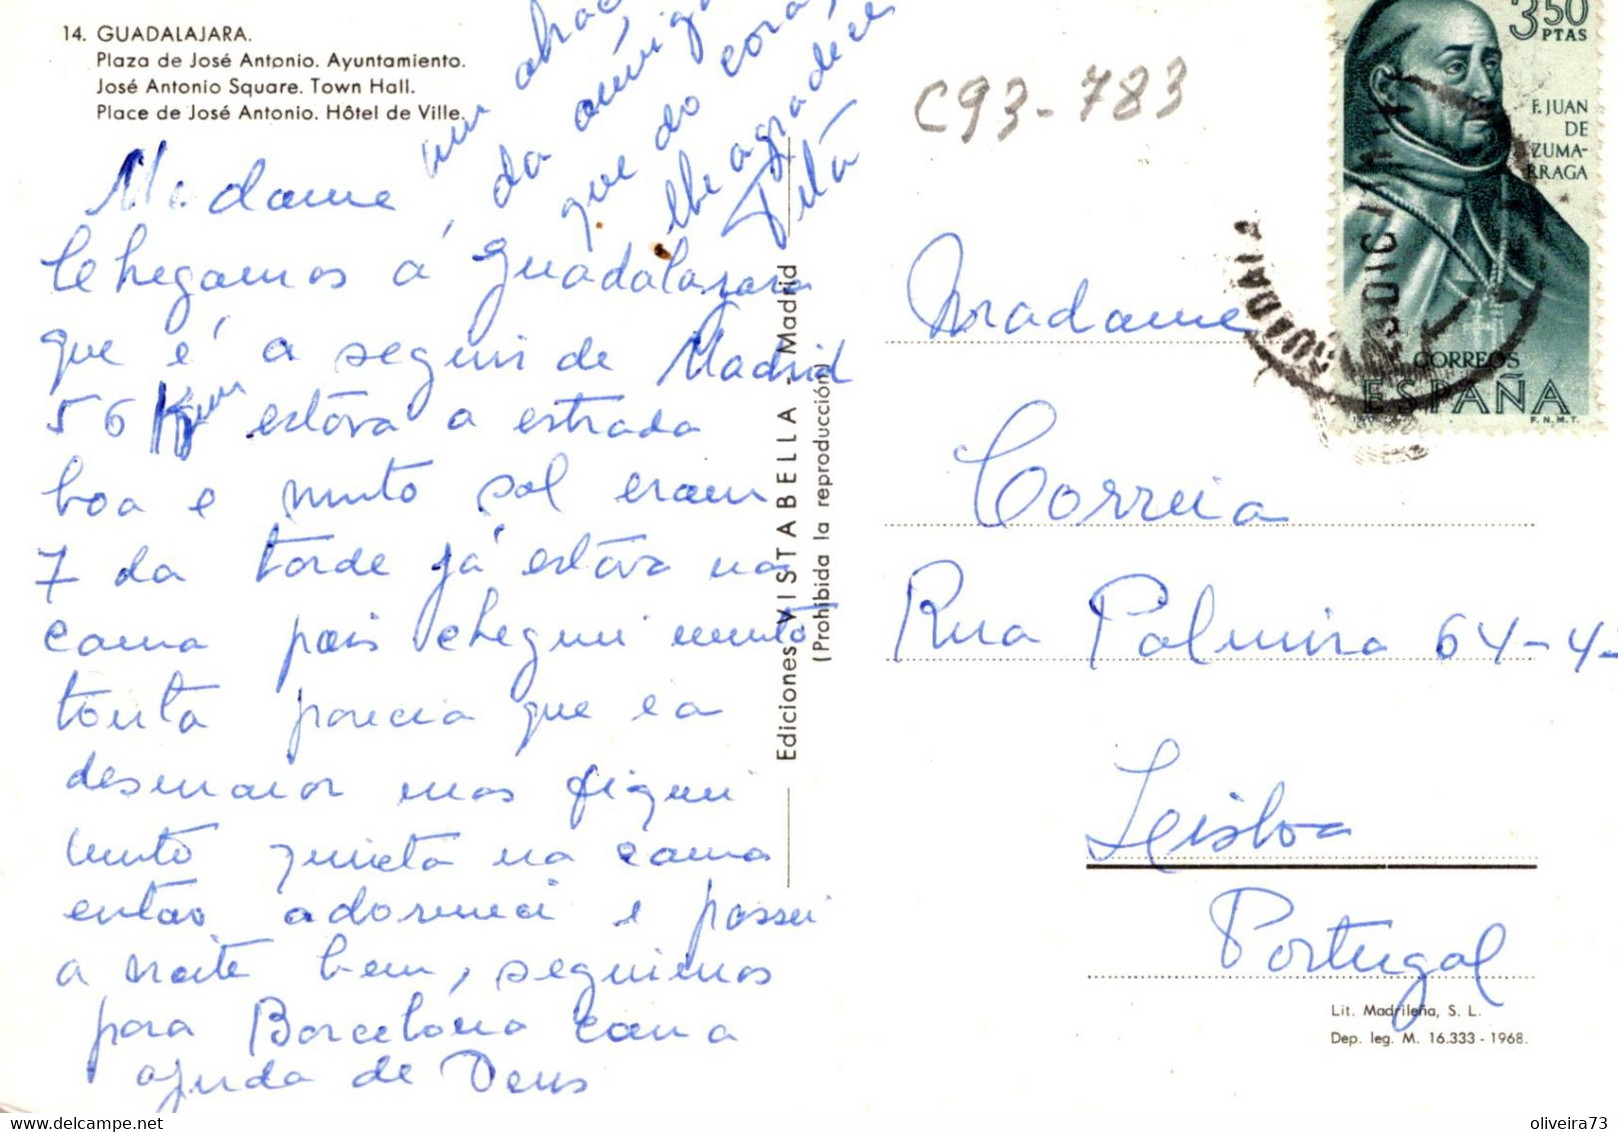 14. GUADALAJARA.
Plaza de José Antonio. Ayuntamiento.
José Antonio Square. Town Hall.
Place de José Antonio. Hôtel de Ville.
Madame,
Chegamos á Guadalajara
que é a seguir de Madrid
56 Km estava a estrada
boa e muito sol eram
7 da tarde já estava na
cama pois cheguei muito
tonta parecia que ia
desmaiar mas fiquei
muito quieta na cama
então adormeci e passei
a noite bem, seguimos
para Barcelona com a
ajuda de Deus
um abraço
da amiga
que do coração
lhe agradece
Ediciones VISTABELLA - Madrid
(Prohibida la reproducción)
C93-783
3'50
PTAS
F. JUAN
DE
ZUMA-
RRAGA
CORREOS
ESPAÑA
F.N.M.T.
Madame
Correia
Rua Palmira 64-4-
Leisboa
Portugal
Lit. Madrileña, S. L.
Dep. leg. M. 16.333 - 1968.
oliveira73